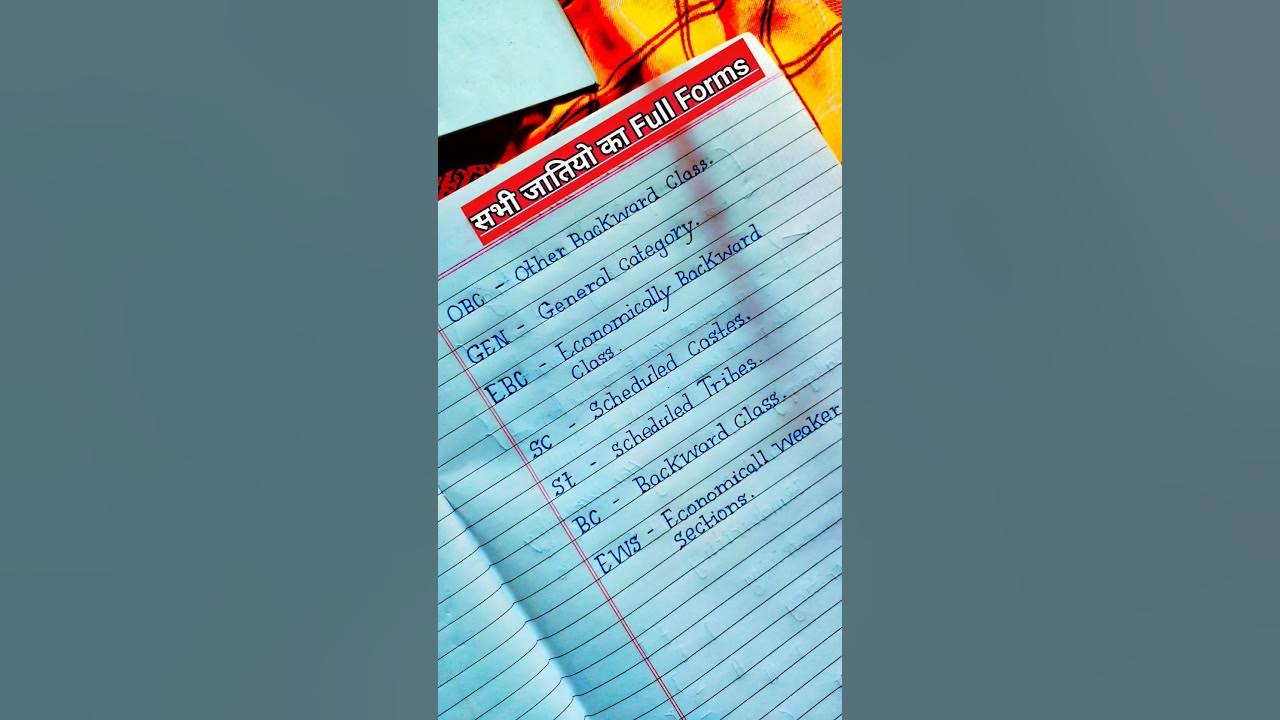 सभी जातियो का Full Forms
OBC - Other Backward Class.
GEN - General category.
EBC - Economically Backward
Class.
SC - Scheduled Castes.
St - Scheduled Tribes.
BC - Backward Class.
EWS - Economicall weaker
Sections.